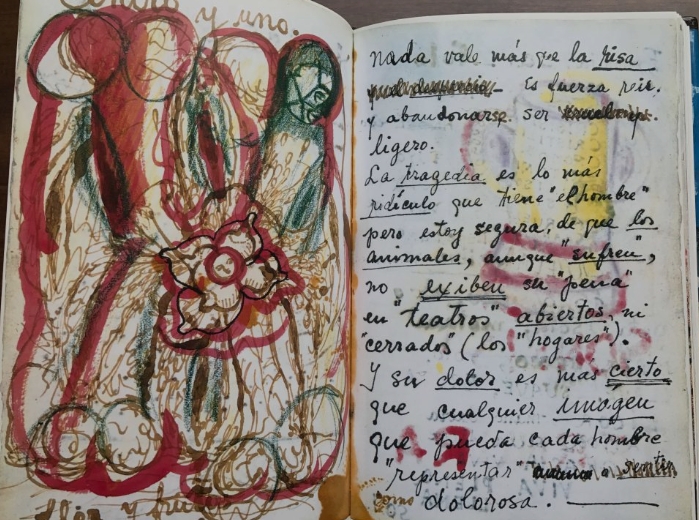 y uno.
nada vale más que la risa
Es fuerza reir.
y abandonarse. ser
ligero.
La tragedia es lo más
ridículo que tiene "el hombre"
pero estoy segura, de que los
animales, aunque "sufren",
no exiben su "pena"
en "teatros" abiertos, ni
"cerrados" (los "hogares").
Y su dolor es mas cierto
que cualquier imagen
que pueda cada hombre
"representar" sentir
como dolorosa.
flor y fruto